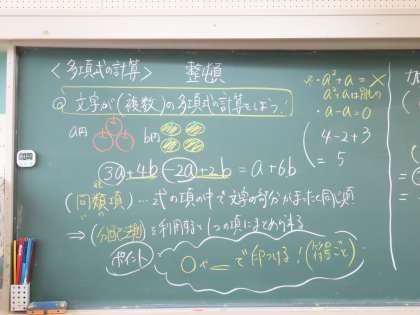 ＜多項式の計算＞ 整頓
Q 文字が(複数)の多項式の計算をしよう!
a円 b円
3a+4b-2a+2b=a+6b
(同類項)…式の項の中で文字の部分がまったく同じ項
⇒(分配法則)を利用する、1つの項にまとめられる
ポイント
○や＿で印つける!(符号ごと)
・a²+a=×
a²とaは別もの
・a-a=0
4-2+3
=5
加